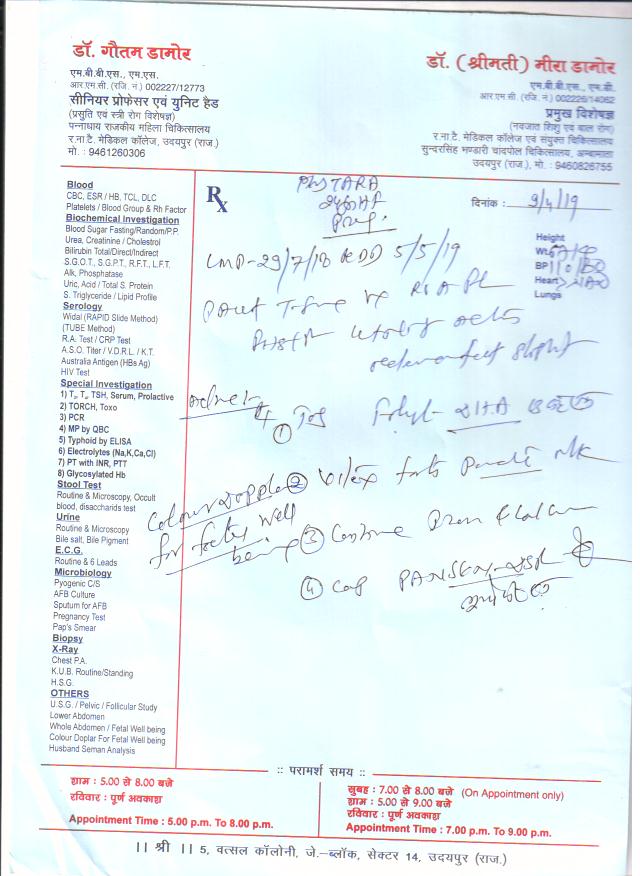 डॉ. गौतम डामोर
एम.बी.बी.एस., एम.एस.
आर.एम.सी. (रजि. नं.) 002227/12773
सीनियर प्रोफेसर एवं युनिट हैड
(प्रसुति एवं स्त्री रोग विशेषज्ञ)
पन्नाधाय राजकीय महिला चिकित्सालय
र.ना.टै. मेडिकल कॉलेज, उदयपुर (राज.)
मो. : 9461260306
डॉ. (श्रीमती) मीरा डामोर
एम.बी.बी.एस., एम.डी.
आर.एम.सी. (रजि. नं.) 002226/14062
प्रमुख विशेषज्ञ
(नवजात शिशु एवं बाल रोग)
र.ना.टै. मेडिकल कॉलेज एवं संयुक्त चिकित्सालय
सुन्दरसिंह भण्डारी चांदपोल चिकित्सालय, अम्बामाता
उदयपुर (राज.), मो. : 9460826755
Blood
CBC, ESR / HB, TCL, DLC
Platelets / Blood Group & Rh Factor
Biochemical Investigation
Blood Sugar Fasting/Random/P.P.
Urea, Creatinine / Cholestrol
Bilirubin Total/Direct/Indirect
S.G.O.T., S.G.P.T., R.F.T., L.F.T.
Alk, Phosphatase
Uric, Acid / Total S. Protein
S. Triglyceride / Lipid Profile
Serology
Widal (RAPID Slide Method)
(TUBE Method)
R.A. Test / CRP Test
A.S.O. Titer / V.D.R.L. / K.T.
Australia Antigen (HBs Ag)
HIV Test
Special Investigation
1) T₃, T₄, TSH, Serum, Prolactive
2) TORCH, Toxo
3) PCR
4) MP by QBC
5) Typhoid by ELISA
6) Electrolytes (Na,K,Ca,Cl)
7) PT with INR, PTT
8) Glycosylated Hb
Stool Test
Routine & Microscopy, Occult
blood, disaccharids test
Urine
Routine & Microscopy
Bile salt, Bile Pigment
E.C.G.
Routine & 6 Leads
Microbiology
Pyogenic C/S
AFB Culture
Sputum for AFB
Pregnancy Test
Pap's Smear
Biopsy
X-Ray
Chest P.A.
K.U.B. Routine/Standing
H.S.G.
OTHERS
U.S.G. / Pelvic / Follicular Study
Lower Abdomen
Whole Abdomen / Fetal Well being
Colour Doplar For Fetal Well being
Husband Seman Analysis
Rx
TARA
दिनांक : 9/4/19
Height
Wt.
BP 110/80
Heart
Lungs
LMP-29/7/18 EDD 5/5/19
①
Colour Doppler ②
for foetus well
being ③ Continue
④ Cap PANSEM-DSR
:: परामर्श समय ::
शाम : 5.00 से 8.00 बजे
रविवार : पूर्ण अवकाश
Appointment Time : 5.00 p.m. To 8.00 p.m.
सुबह : 7.00 से 8.00 बजे (On Appointment only)
शाम : 5.00 से 9.00 बजे
रविवार : पूर्ण अवकाश
Appointment Time : 7.00 p.m. To 9.00 p.m.
|| श्री || 5, वत्सल कॉलोनी, जे.-ब्लॉक, सेक्टर 14, उदयपुर (राज.)